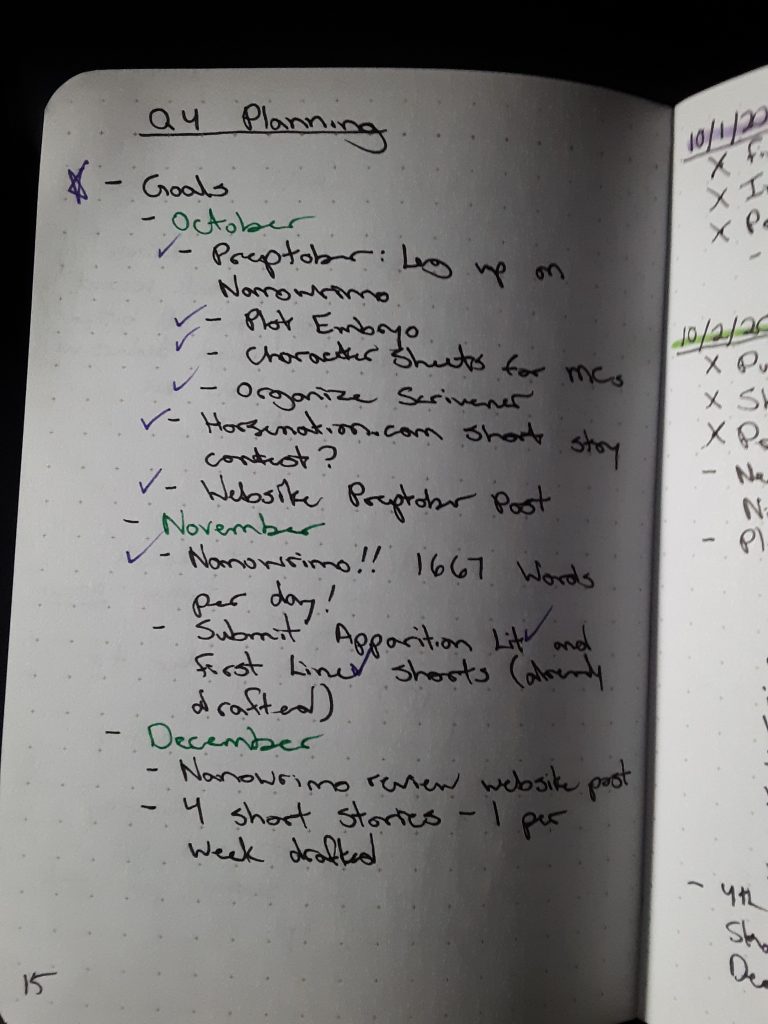 Q4 Planning
- Goals
- October
- Preptober: Log up on
Nanowrimo
- Plot Embryo
- Character Sheets for MCs
- Organize Scrivener
- Horsenation.com short story
contest?
- Website Preptober Post
- November
- Nanowrimo!! 1667 Words
per day!
- Submit Apparition Lit and
First Line Shorts (already
drafted)
- December
- Nanowrimo review website post
- 4 short stories - 1 per
week drafted
15
10/1/20
X
X
X
-
10/2/20
X
X
X
-
-
- 4th